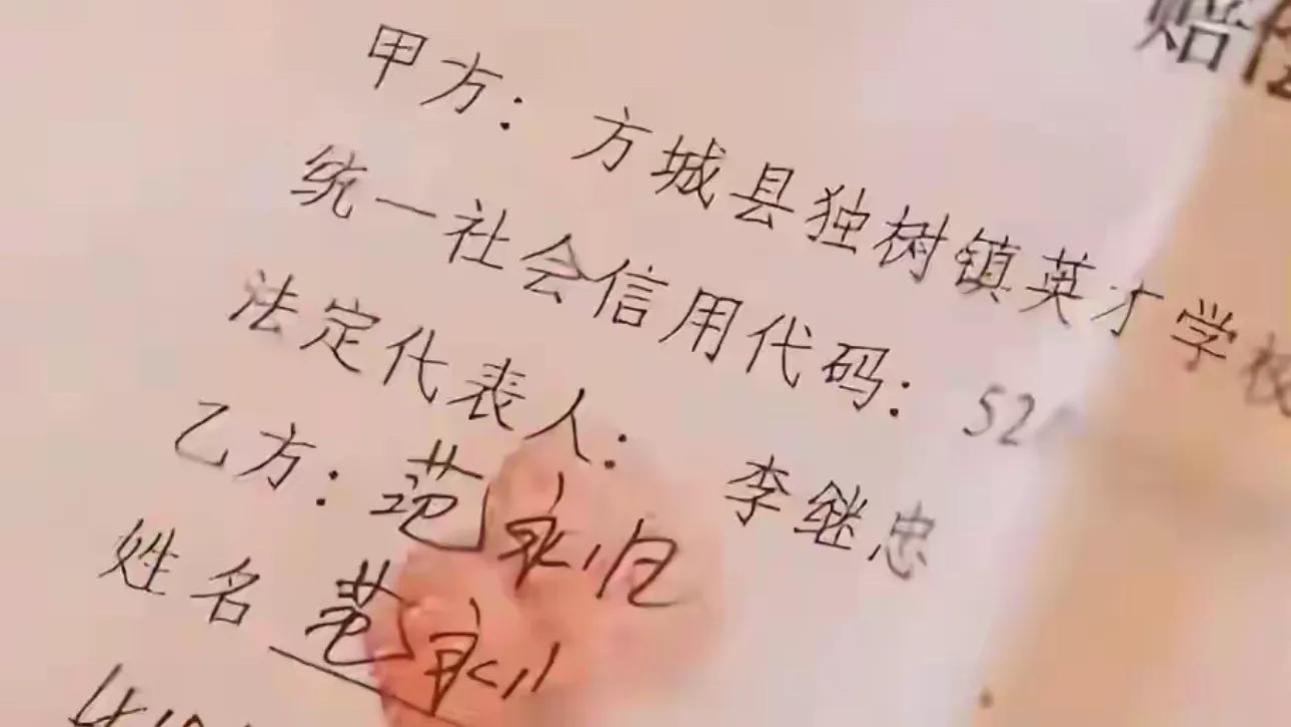 赔偿
甲方：方城县独树镇英才学校
统一社会信用代码：52
法定代表人：李继忠
乙方：范
姓名 范